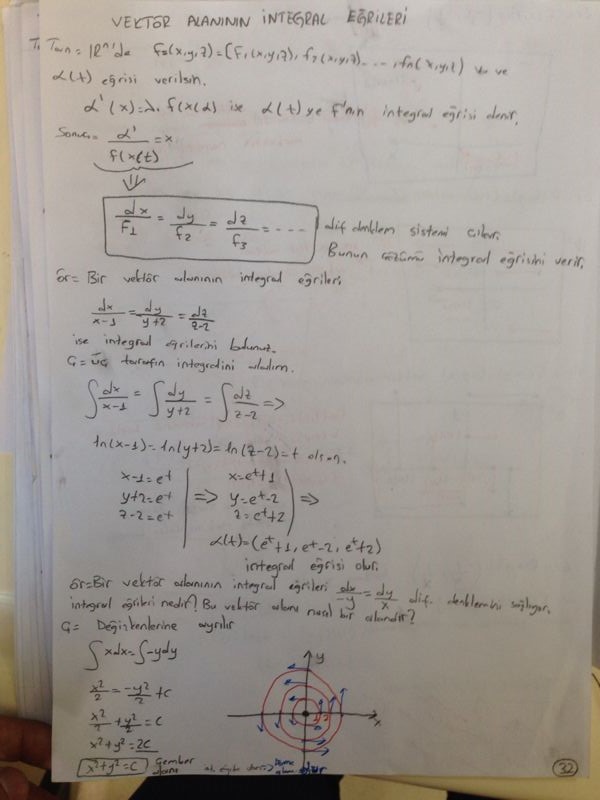 VEKTÖR ALANININ İNTEGRAL EĞRİLERİ
Tanım= IRⁿ'de f=(x,y,z)=(f₁(x,y,z), f₂(x,y,z)-- --, fn(x,y,z) ve
α(t) eğrisi verilsin.
α'(x)=λ. f(x(α) ise α(t) ye f'nin integral eğrisi denir.
Sonuç= α'/f(x(t) = x
⇓
dx/F₁ = dy/f₂ = dz/f₃ = ---- dif denklem sistemi çıkar.
Bunun çözümü integral eğrisini verir.
Ör= Bir vektör alanının integral eğrileri
dx/x-1 = dy/y+2 = dz/z-2
ise integral eğrilerini bulunuz.
Ç= üç tarafın integralini alalım.
∫dx/x-1 = ∫dy/y+2 = ∫dz/z-2 =>
ln(x-1)=ln(y+2)=ln(z-2)=t olsun.
x-1=eᵗ x=eᵗ+1
y+2=eᵗ => y=eᵗ-2 =>
z-2=eᵗ z=eᵗ+2
α(t)=(eᵗ+1, eᵗ-2, eᵗ+2)
integral eğrisi olur.
Ör=Bir vektör alanının integral eğrileri dx/-y = dy/x dif. denklemini sağlıyor.
integral eğrileri nedir? Bu vektör alanı nasıl bir alandır?
Ç= Değişkenlerine ayrılır
∫xdx=∫-ydy y
x²/2 = -y²/2 +c
x²/2 + y²/2 = C x
x²+y²=2C
x²+y²=C Çember
32